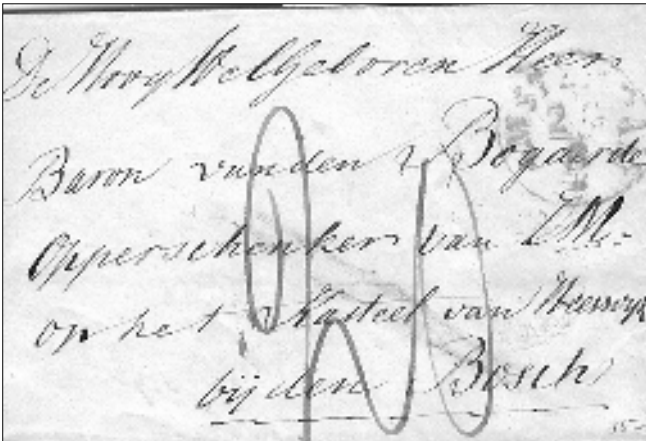 De Hoog Wel Geboren Heer
Baron van den Bogaerde
Opperschenker van ZM.
op het Kasteel van Heeswijk
bij den Bosch